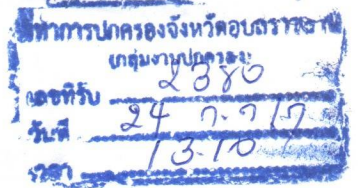 ที่ทำการปกครองจังหวัดอุบลราชธานี
กลุ่มงานปกครอง
เลขที่รับ 2380
วันที่ 24 ก.ค. 17
เวลา 13.10